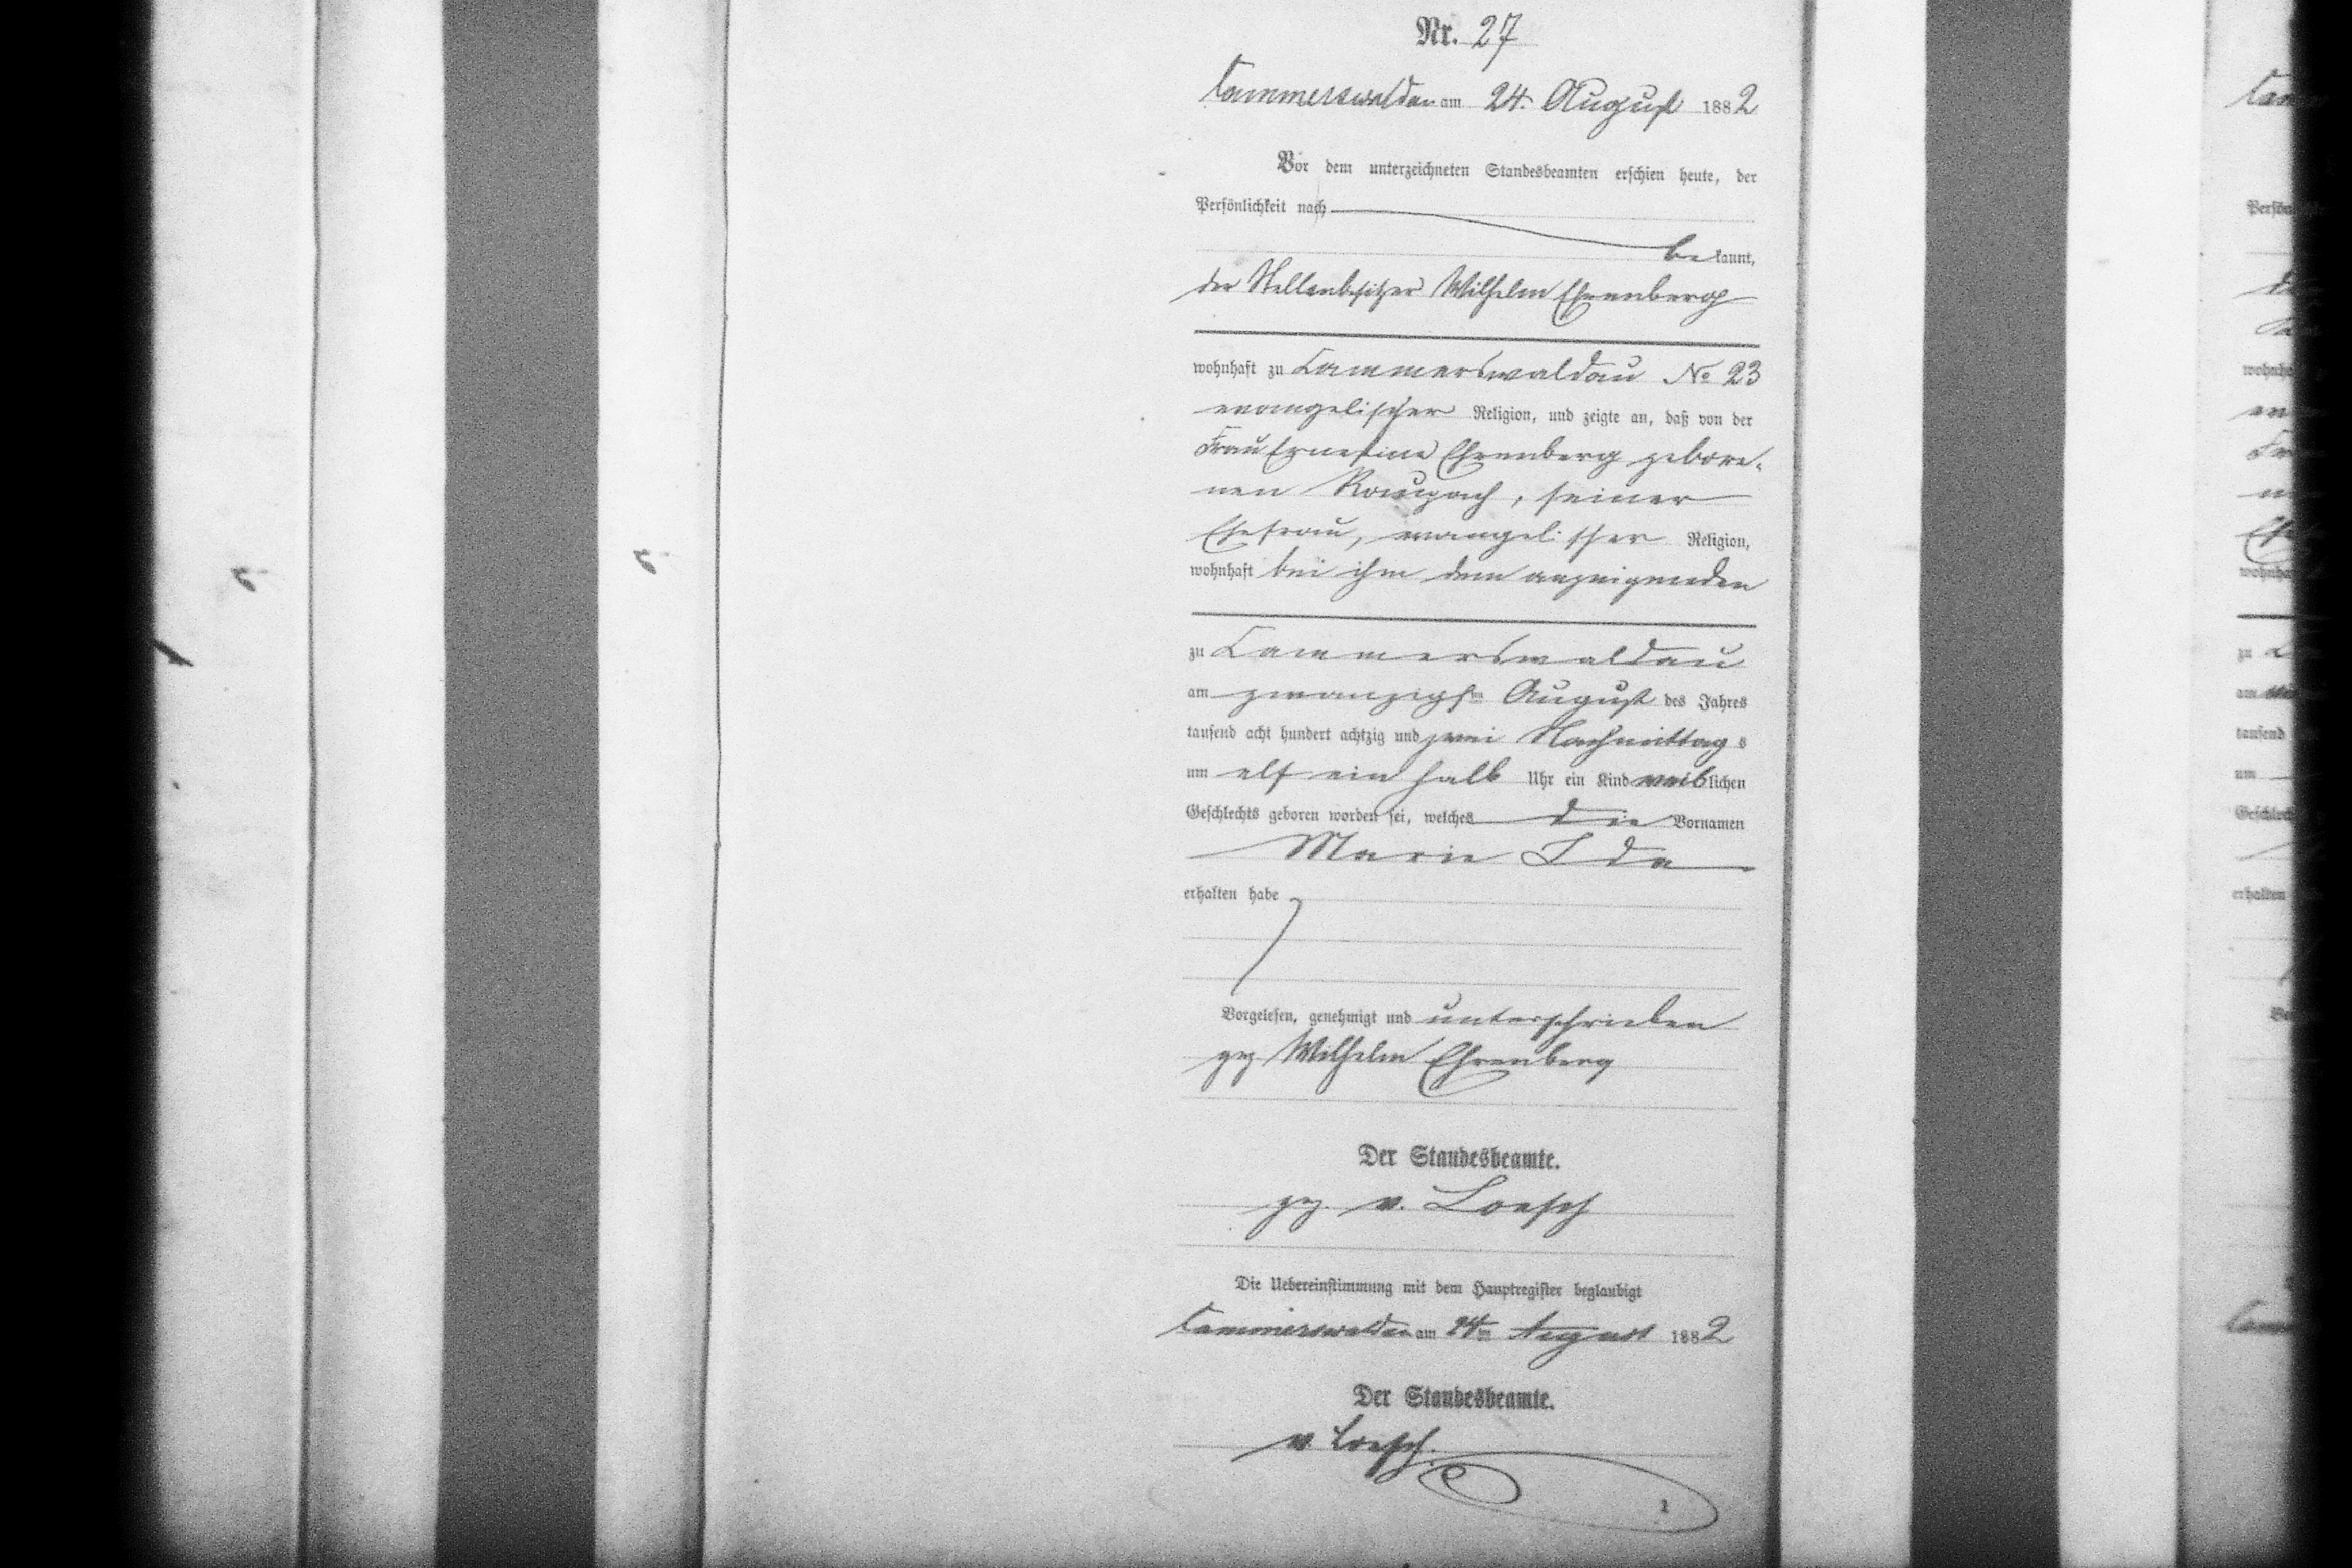 Nr. 27
Cammerswaldau am 24. August 1882
Vor dem unterzeichneten Standesbeamten erschien heute, der
Persönlichkeit nach
bekannt,
der Stellenbesitzer Wilhelm Ehrenberg
wohnhaft zu Cammerswaldau No 23
evangelischer Religion, und zeigte an, daß von der
Frau Ernestine Ehrenberg gebore-
nen Raupach, seiner
Ehefrau, evangelischer Religion,
wohnhaft bei ihm dem anzeigenden
zu Cammerswaldau
am zwanzigsten August des Jahres
tausend acht hundert achtzig und zwei Nachmittags
um elf ein halb Uhr ein Kind weiblichen
Geschlechts geboren worden sei, welches die Vornamen
Marie Ida
erhalten habe
Vorgelesen, genehmigt und unterschrieben
gez Wilhelm Ehrenberg
Der Standesbeamte.
gez. v. Loesch
Die Uebereinstimmung mit dem Hauptregister beglaubigt
Cammerswaldau am 24ten August 1882
Der Standesbeamte.
v Loesch.
1